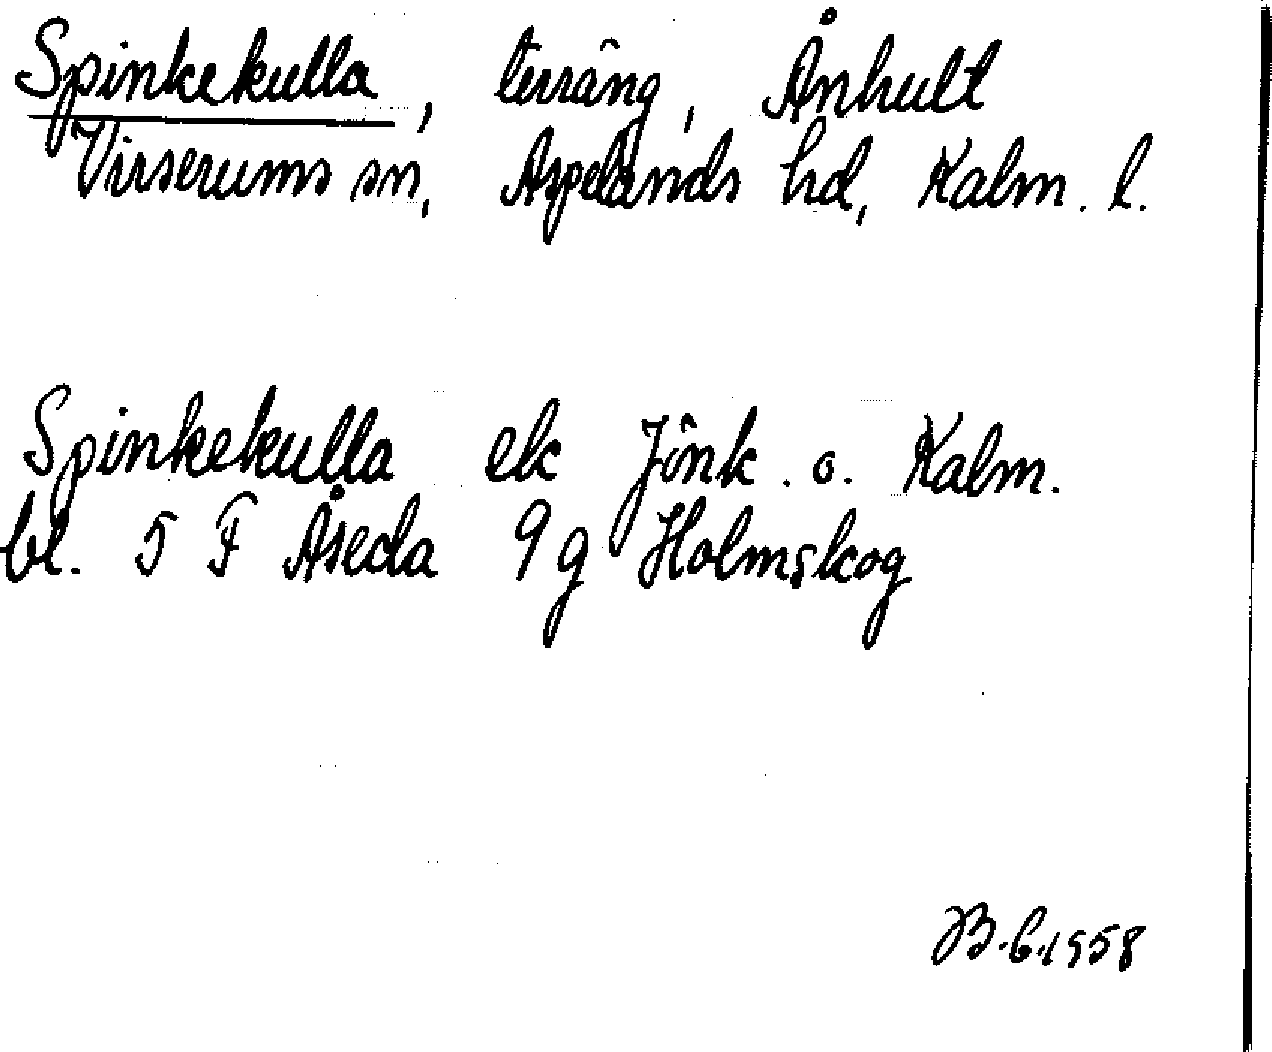 Spinkekulla, terräng, Ånhult
Virserums sn, Aspelands hd, Kalm. l.
Spinkekulla ek Jönk. o. Kalm.
bl. 5 F Åseda 9 g Holmskog
B.G.1958